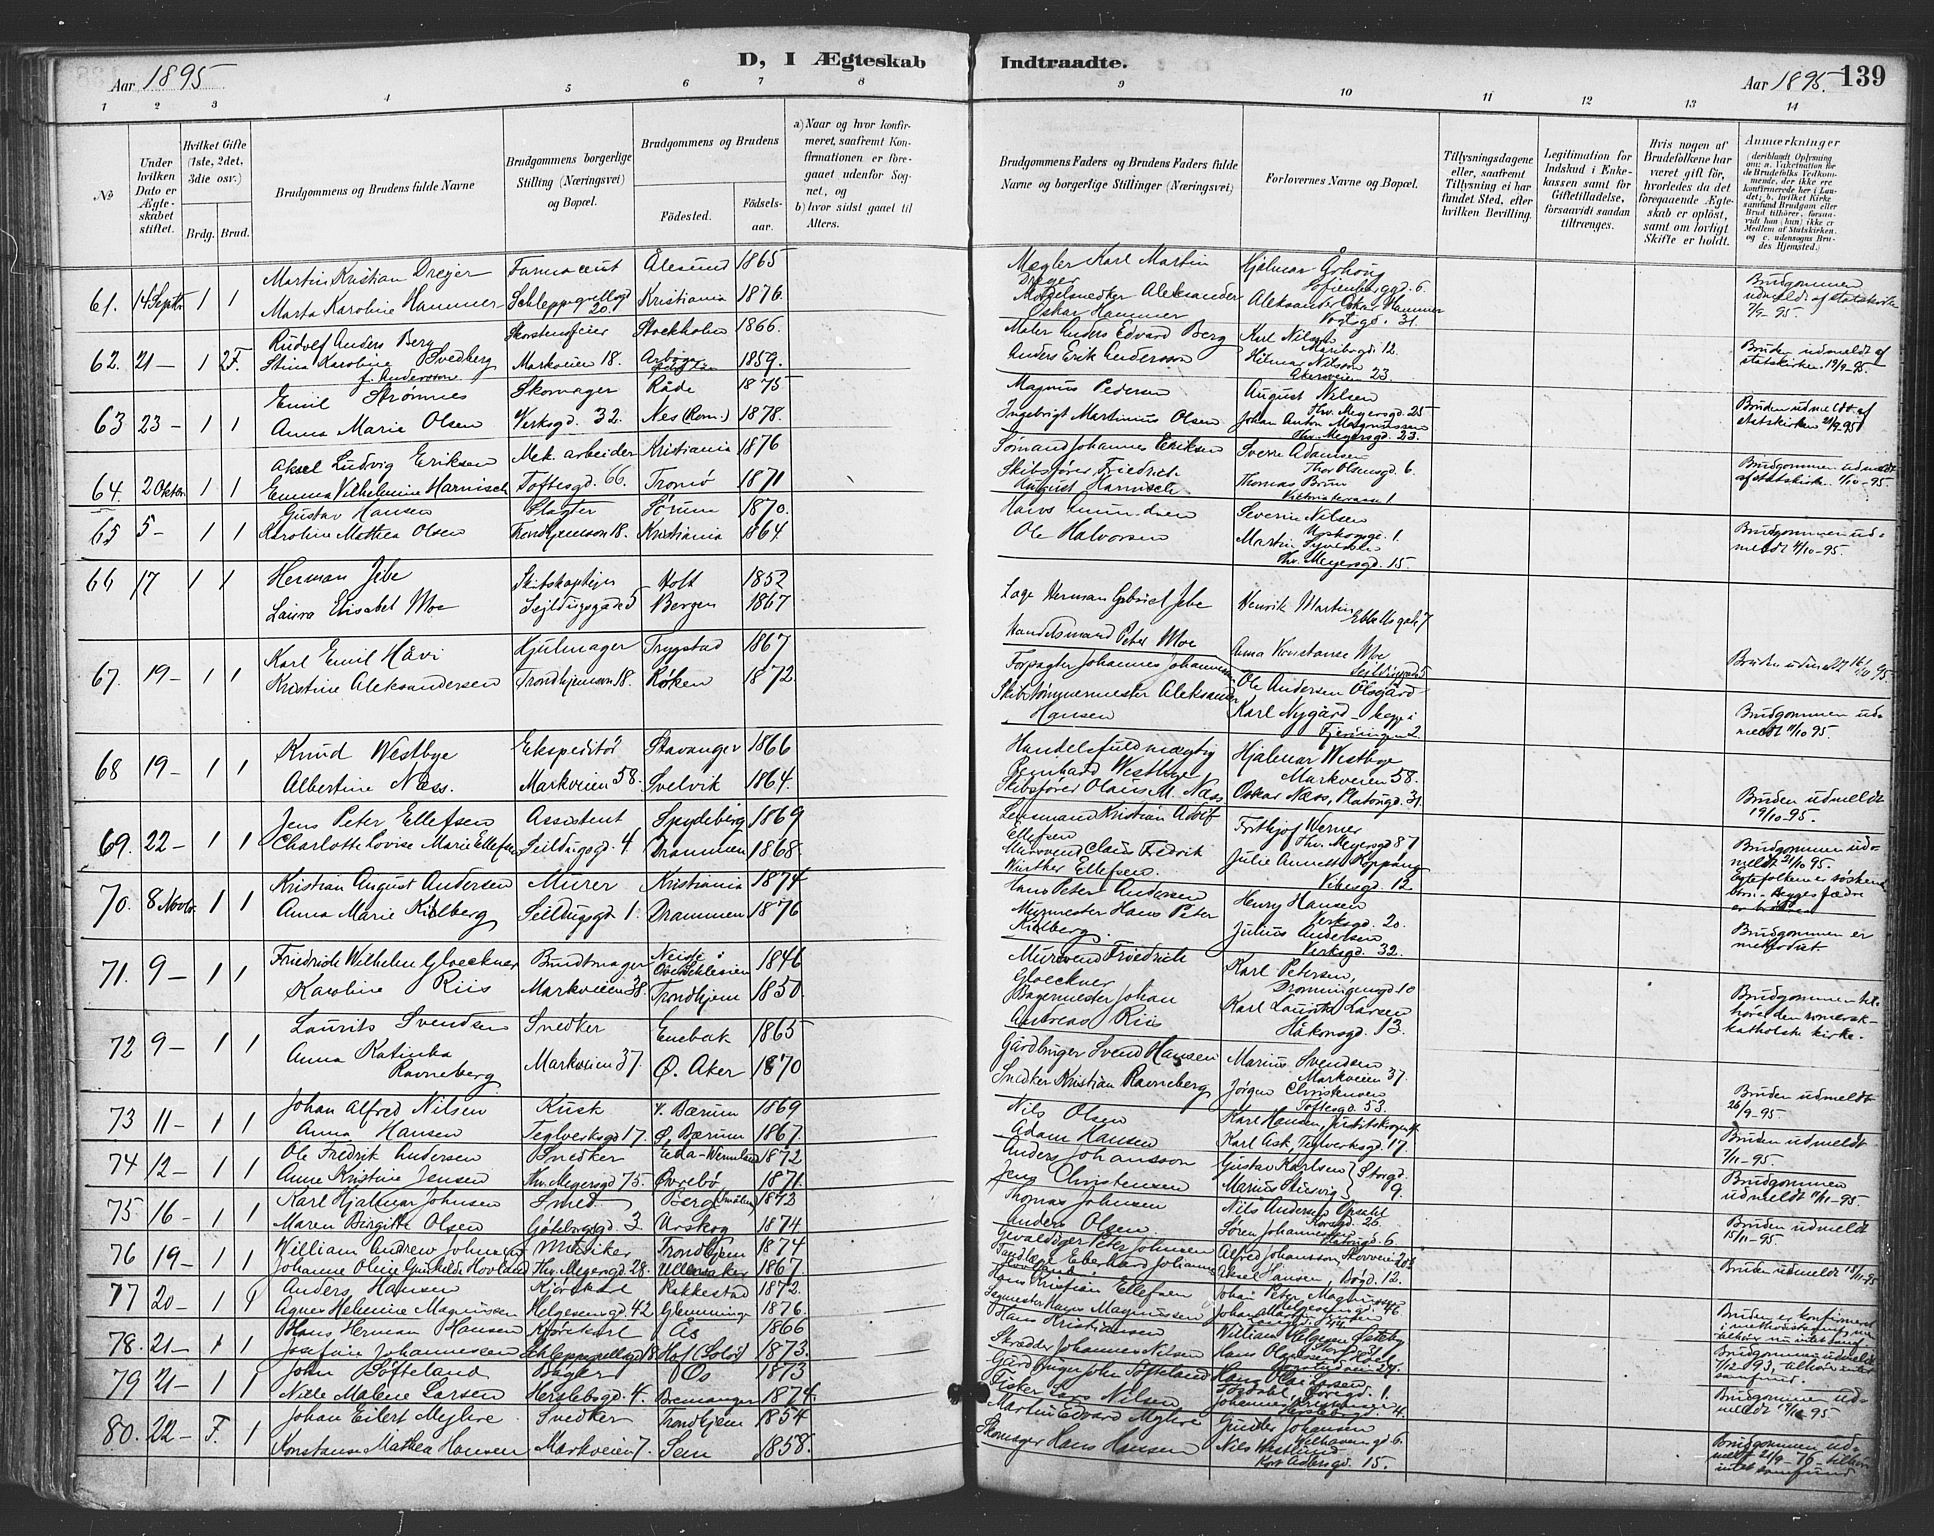 Aar 1895.
D, I Ægteskab Indtraadte.
Aar 1895. 139
1 2 3 4 5 6 7 8 9 10 11 12 13 14
No
Under hvilken Dato er Ægteskabet stiftet.
Hvilket Gifte (1ste, 2det, 3die osv.)
Brdg. Brud.
Brudgommens og Brudens fulde Navne
Brudgommens borgerlige Stilling (Næringsvei) og Bopæl.
Brudgommens og Brudens
Fødested. Fødselsaar.
a) Naar og hvor konfirmeret, saafremt Konfirmationen er foregaaet udenfor Sognet, og
b) hvor sidst gaaet til Alters.
Brudgommens Faders og Brudens Faders fulde Navne og borgerlige Stillinger (Næringsvei)
Forlovernes Navne og Bopæl.
Tillysningsdagene eller, saafremt Tillysning ei har fundet Sted, efter hvilken Bevilling.
Legitimation for Indskud i Enkekassen samt for Giftetilladelse, forsaavidt saadan tiltrænges.
Hvis nogen af Brudefolkene har været gift før, hvorledes da det foregaaende Ægteskab er opløst, samt om lovligt Skifte er holdt.
Anmerkninger
(deriblandt Oplysning om: a. Vakcination for de Brudefolks Vedkommende, der ikke ere konfirmerede her i Landet; b. hvilket Kirkesamfund Brudgom eller Brud tilhører, forsaavidt han (hun) ikke er Medlem af Statskirken, og c. udensogns Brudes Hjemsted.)
61. 14 Septbr 1 1 Martin Kristian Dreyer Farmaceut Ålesund 1865 Mægler Karl Martin Dreyer Hjalmar
Marta Karoline Hammer Schleppegrellsgd 20. Kristiania 1876. Aleksander Oskar Hammer Aleksander Oskar Hammer Vogtsgd. 31. Brudgommen udmeldt af statskirken 7/9-95.
62. 21 – 1 2F. Rudolf Anders Berg Skorstensfeier Stockholm 1866. Maler Anders Edvard Berg Karl Nilsen Maribogd. 12.
Stina Karoline Svedberg f. Andersson Markveien 18. Arboga 1859. Anders Erik Andersson Hilma Nilsson Akersveien 23. Bruden udmeldt af statskirken 19/9-95.
63 23 – 1 1 Emil Strømnes Skomager Råde 1875 Magnus Pedersen August Nilsen Thv. Meyersgd. 25
Anna Marie Olsen Verksgd. 32. Nes (Rom.) 1878. Ingebrigt Martinius Olsen Johan Anton Magnussen Thv. Meyersgd. 23. Bruden udmeldt af statskirken 21/9-95
64. 2 Oktbr. 1 1 Aksel Ludvig Eriksen Mek. arbeider Kristiania 1876 Sømand Johannes Eriksen Sverre Adamsen Thor Olsensgd. 6.
Emma Vilhelmine Harnisch Toftesgd. 66. Tromø 1871 Skibsfører Friedrich August Harnisch Thomas Brun Brudgommen udmeldt af statskirk. 1/10-95.
65 5 – 1 1 Gustav Hansen Slagter Sørum 1870. Hans Severin Nilsen
Karoline Mathea Olsen Trondhjemsvn 18. Kristiania 1864 Ole Halvorsen Martin Thv. Meyersgd. 15. Brudgommen udmeldt 4/10-95.
66 17 1 1 Herman Jebe Skibskaptejn Holt 1852 Herman Gabriel Jebe Henrik Martin Ebbellsgade 7
Laura Elisabet Moe Sejldugsgade 5 Bergen 1867 Handelsmand Peter Moe Anna Konstanse Moe Seildugsgd 5 Bruden udmeldt 16/10 95.
67. 19 – 1 1 Karl Emil Håvi Hjulmager Trygstad 1867 Forpagter Johannes Johannesen Ole Andersen Ølsgård
Kristine Aleksandersen Trondhjemsvn 18. Røken 1872 Skibstømmermester Aleksander Hansen Karl Nygård – begge i Fjerdingen 2. Brudgommen udmeldt 11/10 95.
68 19 – 1 1 Knud Westbye Ekspeditør Stavanger 1866 Handelsfuldmægtig Reinhard Westbye Hjalmar Westbye Markveien 58.
Albertine Næss. Markveien 58. Svelvik 1864. Skibsfører Olaus M. Næss Oskar Næss, Platousgd. 31. Bruden udmeldt 19/10-95.
69. 22 – 1 1 Jens Peter Ellefsen Assistent Spydeberg 1869 Lensmand Kristian Adolf Ellefsen Frithjof Werner Thv. Meyersgd 87
Charlotte Lovise Marie Ellefsen Seildugsgd. 4. Drammen 1868. Claus Fredrik Ellefsen. Julie Annette Koppang Vibesgd. 12. Brudgommen udmeldt 21/10 95. Egtefolkene er søskendebørn – begges fædre er brødre
70. 8 Novbr. 1 1 Kristian August Andersen Murer Kristiania 1874 Hans Peter Andersen Henry Hansen Verksgd. 20.
Anna Marie Kiølberg Seildugsgd 1. Drammen 1876 Murmester Hans Peter Kiølberg. Julius Andersen Verksgd. 32. Brudgommen er methodist.
71. 9 – 1 1 Friedrich Wilhelm Gloeckner Bundtmager Neisse i Ober Schlesien 1846 Friedrich Gloeckner Karl Petersen, Dronningensgd 10
Karoline Riis Markveien 38. Trondhjem 1850. Bagermester Johan Andreas Riis Karl Laurits Larsen Håkonsgd. 13. Brudgommen tilhører den romersk-katholske kirke.
72 9 – 1 1 Laurits Svendsen Snedker Enebak 1865 Gårdbruger Svend Hansen Marius Svendsen Markveien 37.
Anna Katinka Ravneberg Markveien 37. Ø. Aker 1870 Snedker Kristian Ravneberg Jørgen Christensen Toftesgd. 53. Bruden udmeldt 26/9-95
73 11 – 1 1 Johan Alfred Nilsen Kusk V. Bærum 1869 Nils Olsen Karl Hansen,
Anna Hansen Teglverksgd 17. Ø. Bærum 1867. Adam Hansen Karl Ask Teglverksgd. 17. Bruden udmeldt 7/11-95.
74 12 – 1 1 Ole Fredrik Andersen Snedker Eda-Wermland 1872 Anders Johansson Gustav Karlsen Storgd. 9.
Anne Kristine Jensen Thv. Meyersgd 75. Øvrebø 1871. Jens Christensen Marius Brudgommen udmeldt 11/11-95
75 16 – 1 1 Karl Hjalmar Johnsen Smed. Berg (Smålen) 1873 Thomas Johnsen Nils Anderson Opsahl Korsgd. 26.
Maren Birgitte Olsen Göteborgsgd 3. Urskog 1874 Anders Olsen Søren Johannesen Platousgd. 6. Bruden udmeldt 15/11-95
76 19 – 1 1 William Andrew Johnsen Musiker Trondhjem 1874 Gevaldiger Peter Johnsen Alfred Johansson
Johanne Oline Gunhilde Hovland Thv. Meyersgd. 28. Ullensaker 1867. Tandlæge Eberhard Johannes Hovland Aksel Larsen, Bøgd. 12. Bruden udmeldt 18/11-95
77 20 – 1 1 Anders Hansen Kjørekarl Rakkestad 1872. Hans Kristian Ellefsen Johan Peter Magnussen Helgesensgd. 42
Agnes Helmine Magnussen Helgesensgd. 42 Glemminge 1876. Hans Magnussen Bruden er konfirmeret i methodistmenigheden
78. 21 – 1 1 Hans Herman Hansen Kjørekarl Ås 1866 Hans Kristiansen William Helgesen
Josefine Johannessen Schleppegrellsgd 18 Hof (Solør) 1873. Skrædder Johannes Nilsen Hans Olsen Brudgommen udmeldt 7/12 93, tilhører intet samfund.
79 21 – 1 1 John Løfteland Bager Os 1873 Gårdbruger John Løfteland Hans Olai Larsen
Nille Malene Larsen Herslebsgd. 4. Bremanger 1874. Fisker Lars Nilsen Johannes Herslebsgd 4. Brudgommen udmeldt 19/11-95
80. 22 – F. 1 Johan Eilert Myhre Snedker Trondhjem 1854 Martin Edvard Myhre Gunder Johansen Welhavensgd 6.
Konstanse Mathea Hansen Markveien 7. Sem 1858. Skomager Hans Hansen Nils Westlund Kort Adelersgd. 15. Brudgommen udmeldt 21/9-76 – tilhører intet samfund